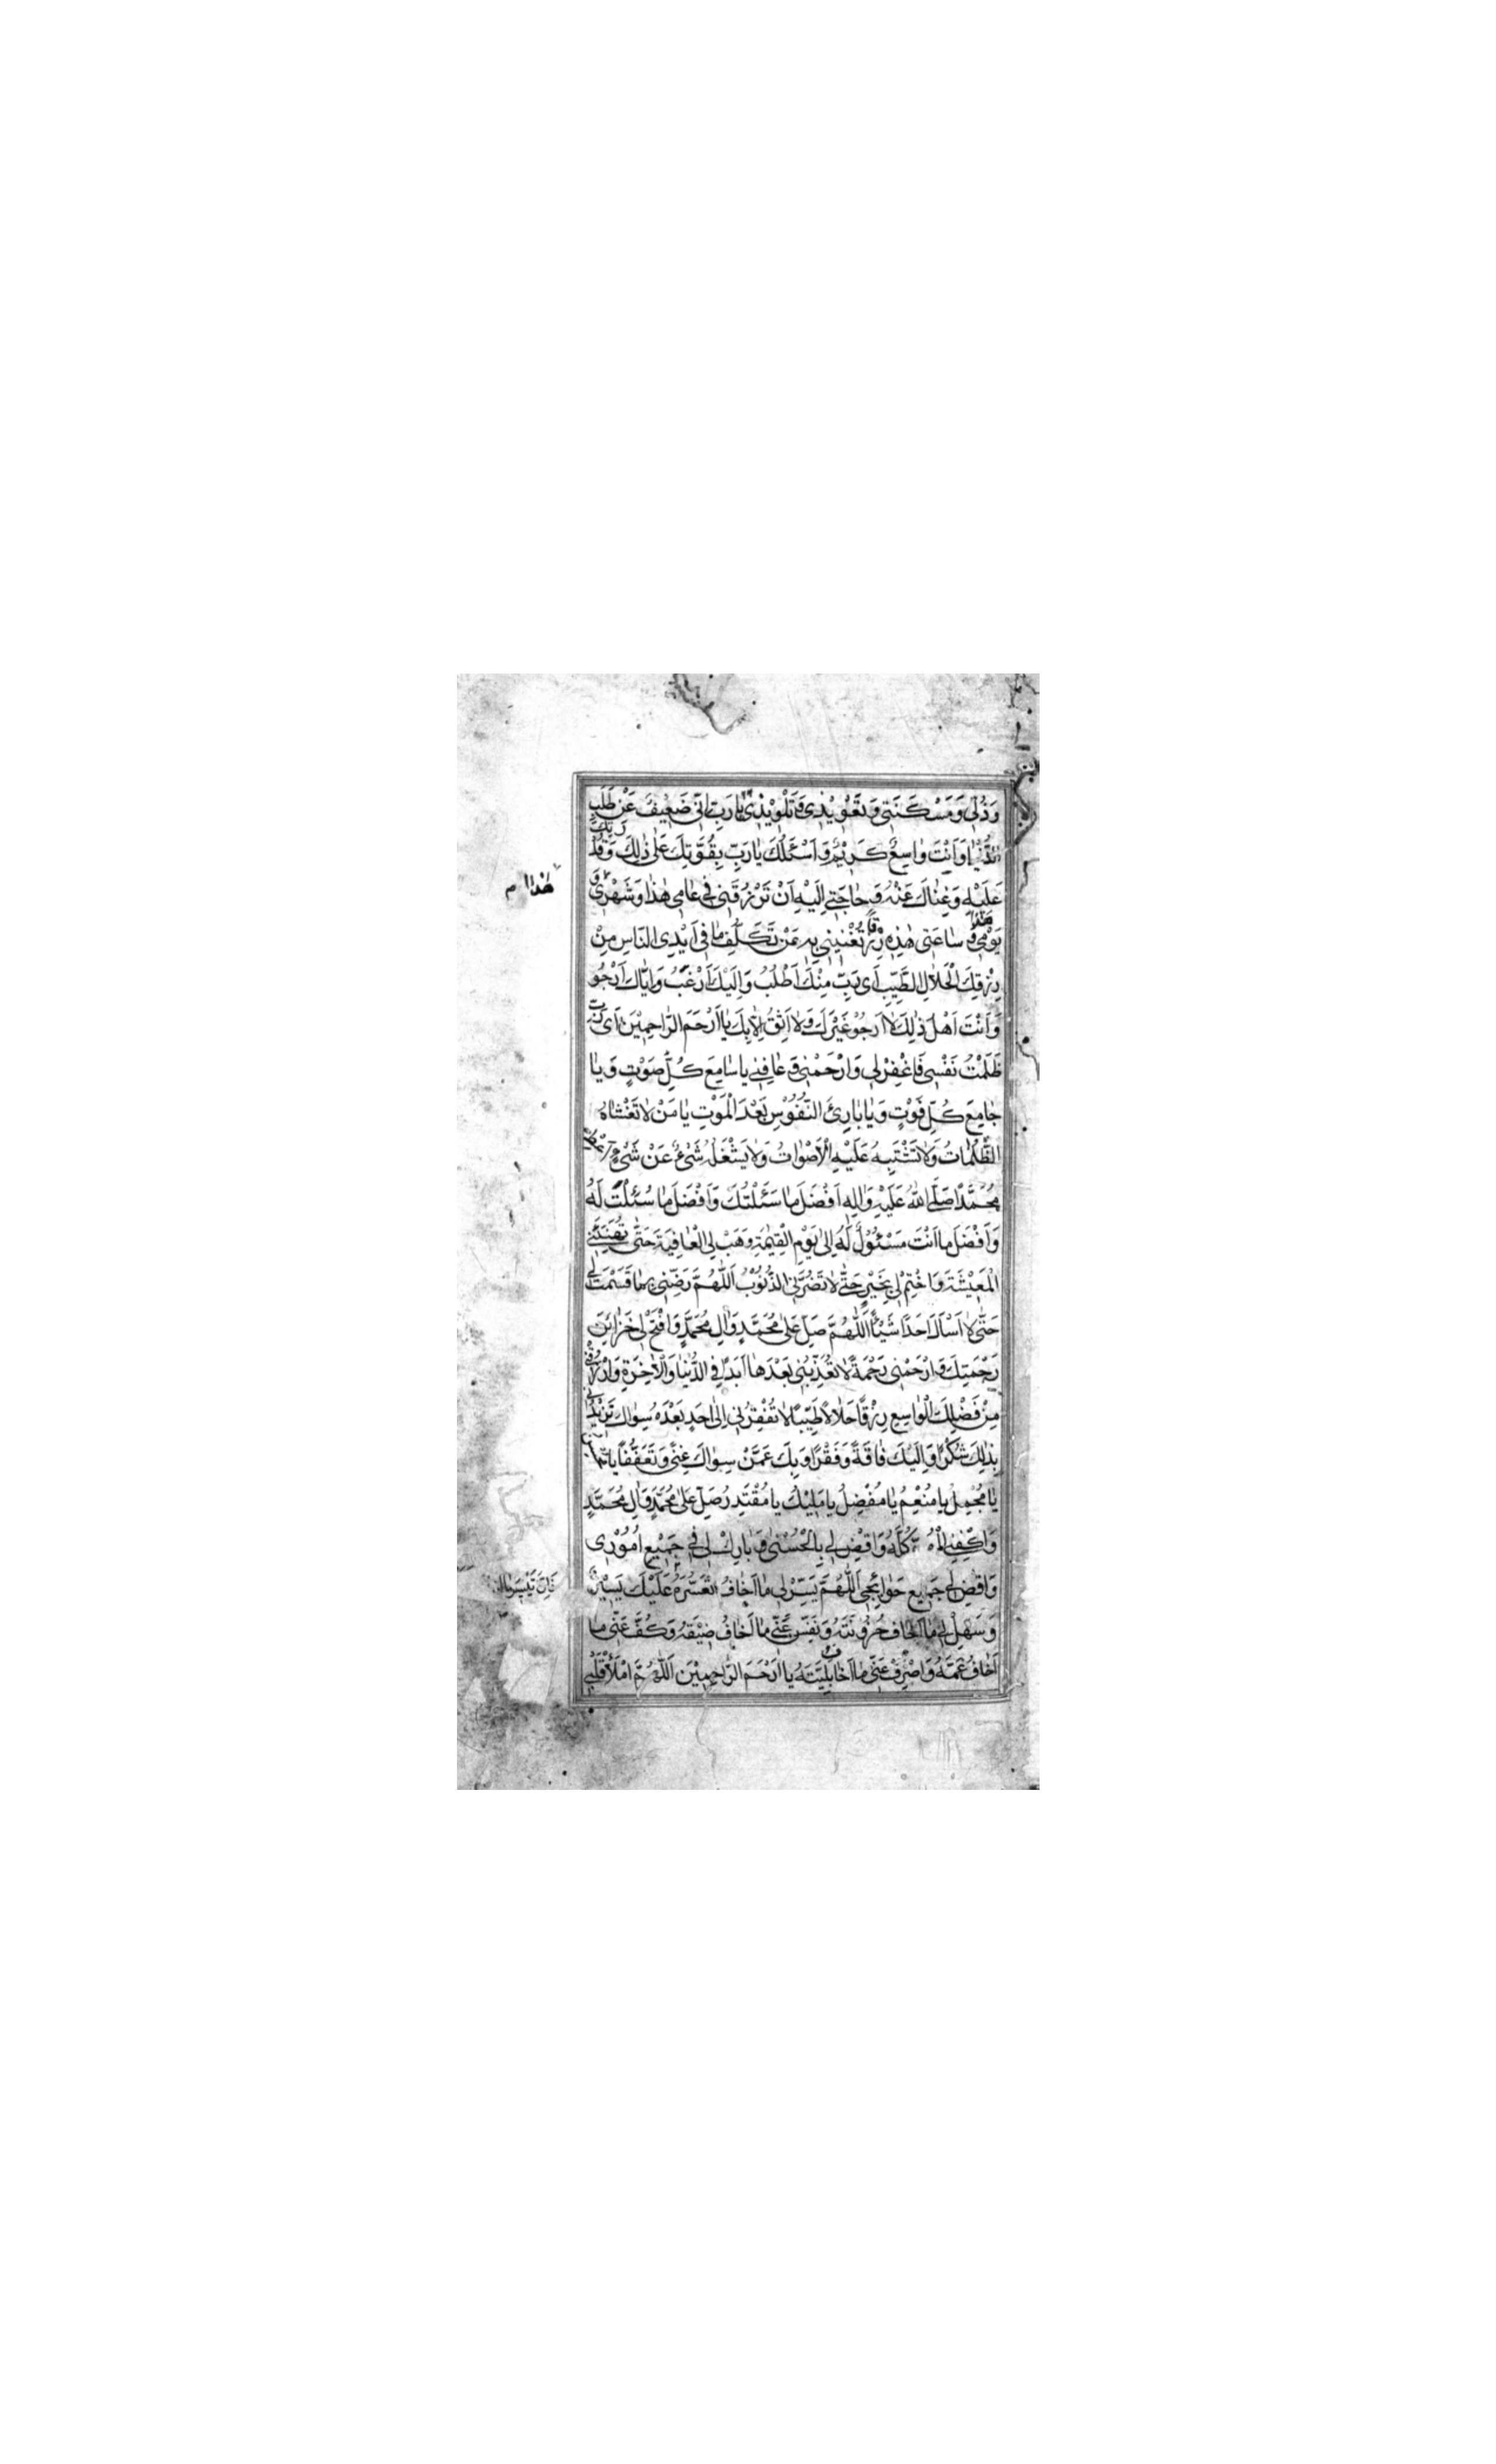 وَذُلّي وَمَسْكَنَتي وَتَعْويذي وَتَلْويذي يا رَبِّ اِنّي ضَعيفٌ عَنْ طَلَبِ
الدُّنْيا وَاَنْتَ واسِعٌ كَريمٌ وَاَسْئَلُكَ يا رَبِّ بِقُوَّتِكَ عَلى ذلِكَ وَقُدْرَتِكَ
عَلَيْهِ وَغِناكَ عَنْهُ وَحاجَتي اِلَيْهِ اَنْ تَرْزُقَني في عامي هذا وَشَهْري وَ
هذا م
يَوْمي هذا وَساعَتي هذِهِ رِزْقًا تُغْنيني بِهِ عَنْ تَكَلُّفِ ما في اَيْدِي النّاسِ مِنْ
رِزْقِكَ الْحَلالِ الطَّيِّبِ اَيْ رَبِّ مِنْكَ اَطْلُبُ وَاِلَيْكَ اَرْغَبُ وَاِيّاكَ اَرْجُو
وَاَنْتَ اَهْلُ ذلِكَ لا اَرْجُو غَيْرَكَ وَلا اَثِقُ اِلّا بِكَ يا اَرْحَمَ الرّاحِمينَ اَيْ رَبِّ
ظَلَمْتُ نَفْسي فَاغْفِرْ لي وَارْحَمْني وَعافِني يا سامِعَ كُلِّ صَوْتٍ وَيا
جامِعَ كُلِّ فَوْتٍ وَيا بارِئَ النُّفُوسِ بَعْدَ الْمَوْتِ يا مَنْ لا تَغْشاهُ
الظُّلُماتُ وَلا تَشْتَبِهُ عَلَيْهِ الْاَصْواتُ وَلا يَشْغَلُهُ شَيْءٌ عَنْ شَيْءٍ
مُحَمَّدًا صَلَّى اللهُ عَلَيْهِ وَالِهِ اَفْضَلَ ما سَئَلْتُكَ وَاَفْضَلَ ما سُئِلْتَ لَهُ
وَاَفْضَلَ ما اَنْتَ مَسْئُولٌ لَهُ اِلى يَوْمِ الْقِيمَةِ وَهَبْ لِي الْعافِيَةَ حَتّى تُهَنِّئَنِي
الْمَعيشَةَ وَاخْتِمْ لي بِخَيْرٍ حَتّى لا تَضُرَّنِي الذُّنُوبُ اَللّهُمَّ رَضِّني بِما قَسَمْتَ لي
حَتّى لا اَسْأَلَ اَحَدًا شَيْئًا اَللّهُمَّ صَلِّ عَلى مُحَمَّدٍ وَالِ مُحَمَّدٍ وَافْتَحْ لي خَزائِنَ
رَحْمَتِكَ وَارْحَمْني رَحْمَةً لا تُعَذِّبُني بَعْدَها اَبَدًا فِي الدُّنْيا وَالْاخِرَةِ وَارْزُقْني
مِنْ فَضْلِكَ الْواسِعِ رِزْقًا حَلالًا طَيِّبًا لا تُفْقِرُني اِلى اَحَدٍ بَعْدَهُ سِواكَ تَزيدُني
بِذلِكَ شُكْرًا وَاِلَيْكَ فاقَةً وَفَقْرًا وَبِكَ عَمَّنْ سِواكَ غِنًى وَتَعَفُّفًا
يا مُجْمِلُ يا مُنْعِمُ يا مُفْضِلُ يا مَليكُ يا مُقْتَدِرُ صَلِّ عَلى مُحَمَّدٍ وَالِ مُحَمَّدٍ
وَاكْفِنِي كُلَّهُ وَاقْضِ لي بِالْحُسْنى وَبارِكْ لي في جَميعِ اُمُوري
وَاقْضِ لي جَميعَ حَوائِجي اَللّهُمَّ يَسِّرْ لي ما اَخافُ تَعَسُّرَهُ عَلَيْكَ يَسيرٌ
فَاِنَّ تَيْسيرَ ما
وَسَهِّلْ لي ما اَخافُ حُزُونَتَهُ وَنَفِّسْ عَنّي ما اَخافُ ضيقَهُ وَكُفَّ عَنّي ما
اَخافُ غَمَّهُ وَاصْرِفْ عَنّي ما اَخافُ بَلِيَّتَهُ يا اَرْحَمَ الرّاحِمينَ اَللّهُمَّ امْلَأْ قَلْبي